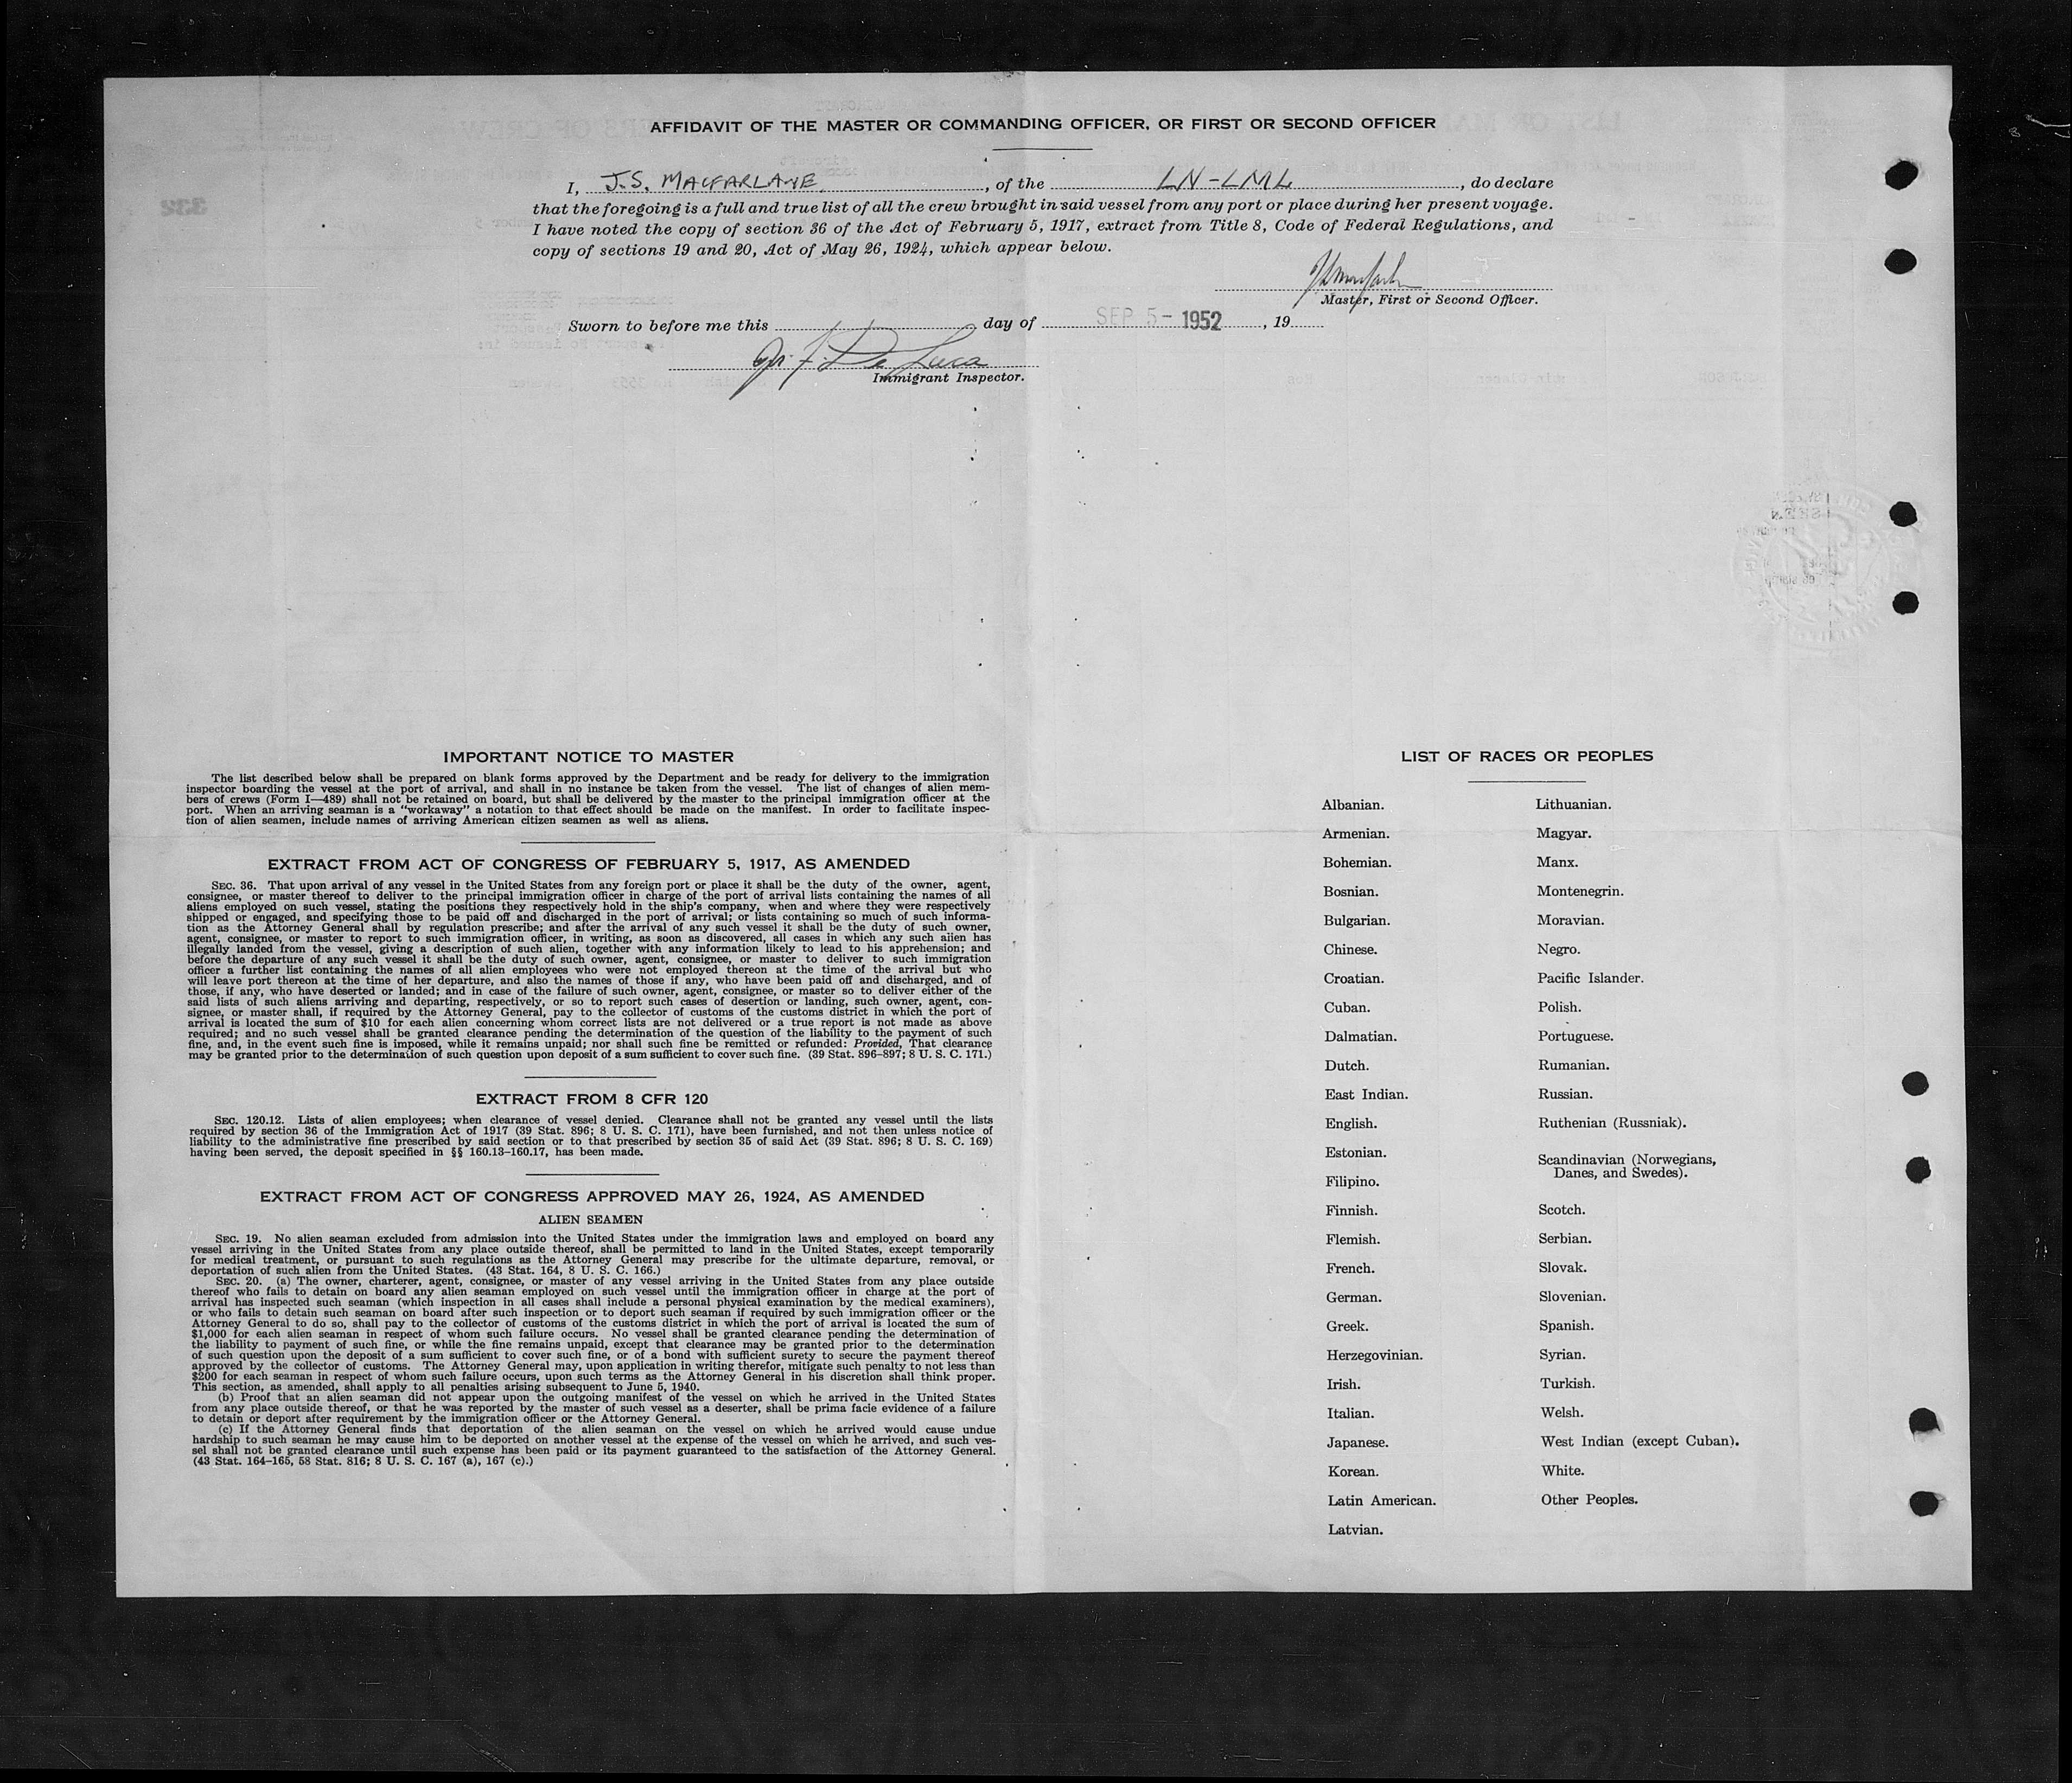 AFFIDAVIT OF THE MASTER OR COMMANDING OFFICER, OR FIRST OR SECOND OFFICER
I, J.S. MACFARLANE, of the LN-LML, do declare
that the foregoing is a full and true list of all the crew brought in said vessel from any port or place during her present voyage.
I have noted the copy of section 36 of the Act of February 5, 1917, extract from Title 8, Code of Federal Regulations, and
copy of sections 19 and 20, Act of May 26, 1924, which appear below.
Master, First or Second Officer.
Sworn to before me this day of SEP 5 - 1952, 19
De Luca
Immigrant Inspector.
IMPORTANT NOTICE TO MASTER
The list described below shall be prepared on blank forms approved by the Department and be ready for delivery to the immigration
inspector boarding the vessel at the port of arrival, and shall in no instance be taken from the vessel. The list of changes of alien mem-
bers of crews (Form I—489) shall not be retained on board, but shall be delivered by the master to the principal immigration officer at the
port. When an arriving seaman is a "workaway" a notation to that effect should be made on the manifest. In order to facilitate inspec-
tion of alien seamen, include names of arriving American citizen seamen as well as aliens.
EXTRACT FROM ACT OF CONGRESS OF FEBRUARY 5, 1917, AS AMENDED
SEC. 36. That upon arrival of any vessel in the United States from any foreign port or place it shall be the duty of the owner, agent,
consignee, or master thereof to deliver to the principal immigration officer in charge of the port of arrival lists containing the names of all
aliens employed on such vessel, stating the positions they respectively hold in the ship's company, when and where they were respectively
shipped or engaged, and specifying those to be paid off and discharged in the port of arrival; or lists containing so much of such informa-
tion as the Attorney General shall by regulation prescribe; and after the arrival of any such vessel it shall be the duty of such owner,
agent, consignee, or master to report to such immigration officer, in writing, as soon as discovered, all cases in which any such alien has
illegally landed from the vessel, giving a description of such alien, together with any information likely to lead to his apprehension; and
before the departure of any such vessel it shall be the duty of such owner, agent, consignee, or master to deliver to such immigration
officer a further list containing the names of all alien employees who were not employed thereon at the time of the arrival but who
will leave port thereon at the time of her departure, and also the names of those if any, who have been paid off and discharged, and of
those, if any, who have deserted or landed; and in case of the failure of such owner, agent, consignee, or master so to deliver either of the
said lists of such aliens arriving and departing, respectively, or so to report such cases of desertion or landing, such owner, agent, con-
signee, or master shall, if required by the Attorney General, pay to the collector of customs of the customs district in which the port of
arrival is located the sum of $10 for each alien concerning whom correct lists are not delivered or a true report is not made as above
required; and no such vessel shall be granted clearance pending the determination of the question of the liability to the payment of such
fine, and, in the event such fine is imposed, while it remains unpaid; nor shall such fine be remitted or refunded: Provided, That clearance
may be granted prior to the determination of such question upon deposit of a sum sufficient to cover such fine. (39 Stat. 896–897; 8 U. S. C. 171.)
EXTRACT FROM 8 CFR 120
SEC. 120.12. Lists of alien employees; when clearance of vessel denied. Clearance shall not be granted any vessel until the lists
required by section 36 of the Immigration Act of 1917 (39 Stat. 896; 8 U. S. C. 171), have been furnished, and not then unless notice of
liability to the administrative fine prescribed by said section or to that prescribed by section 35 of said Act (39 Stat. 896; 8 U. S. C. 169)
having been served, the deposit specified in §§ 160.13–160.17, has been made.
EXTRACT FROM ACT OF CONGRESS APPROVED MAY 26, 1924, AS AMENDED
ALIEN SEAMEN
SEC. 19. No alien seaman excluded from admission into the United States under the immigration laws and employed on board any
vessel arriving in the United States from any place outside thereof, shall be permitted to land in the United States, except temporarily
for medical treatment, or pursuant to such regulations as the Attorney General may prescribe for the ultimate departure, removal, or
deportation of such alien from the United States. (43 Stat. 164, 8 U. S. C. 166.)
SEC. 20. (a) The owner, charterer, agent, consignee, or master of any vessel arriving in the United States from any place outside
thereof who fails to detain on board any alien seaman employed on such vessel until the immigration officer in charge at the port of
arrival has inspected such seaman (which inspection in all cases shall include a personal physical examination by the medical examiners),
or who fails to detain such seaman on board after such inspection or to deport such seaman if required by such immigration officer or the
Attorney General to do so, shall pay to the collector of customs of the customs district in which the port of arrival is located the sum of
$1,000 for each alien seaman in respect of whom such failure occurs. No vessel shall be granted clearance pending the determination of
the liability to payment of such fine, or while the fine remains unpaid, except that clearance may be granted prior to the determination
of such question upon the deposit of a sum sufficient to cover such fine, or of a bond with sufficient surety to secure the payment thereof
approved by the collector of customs. The Attorney General may, upon application in writing therefor, mitigate such penalty to not less than
$200 for each seaman in respect of whom such failure occurs, upon such terms as the Attorney General in his discretion shall think proper.
This section, as amended, shall apply to all penalties arising subsequent to June 5, 1940.
(b) Proof that an alien seaman did not appear upon the outgoing manifest of the vessel on which he arrived in the United States
from any place outside thereof, or that he was reported by the master of such vessel as a deserter, shall be prima facie evidence of a failure
to detain or deport after requirement by the immigration officer or the Attorney General.
(c) If the Attorney General finds that deportation of the alien seaman on the vessel on which he arrived would cause undue
hardship to such seaman he may cause him to be deported on another vessel at the expense of the vessel on which he arrived, and such ves-
sel shall not be granted clearance until such expense has been paid or its payment guaranteed to the satisfaction of the Attorney General.
(43 Stat. 164–165, 58 Stat. 816; 8 U. S. C. 167 (a), 167 (c).)
LIST OF RACES OR PEOPLES
Albanian.
Armenian.
Bohemian.
Bosnian.
Bulgarian.
Chinese.
Croatian.
Cuban.
Dalmatian.
Dutch.
East Indian.
English.
Estonian.
Filipino.
Finnish.
Flemish.
French.
German.
Greek.
Herzegovinian.
Irish.
Italian.
Japanese.
Korean.
Latin American.
Latvian.
Lithuanian.
Magyar.
Manx.
Montenegrin.
Moravian.
Negro.
Pacific Islander.
Polish.
Portuguese.
Rumanian.
Russian.
Ruthenian (Russniak).
Scandinavian (Norwegians,
Danes, and Swedes).
Scotch.
Serbian.
Slovak.
Slovenian.
Spanish.
Syrian.
Turkish.
Welsh.
West Indian (except Cuban).
White.
Other Peoples.